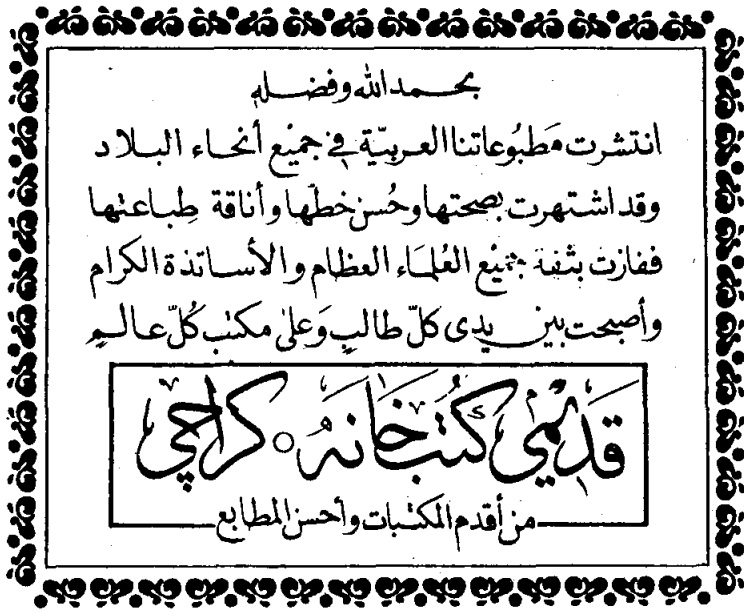 بحمد الله وفضله
انتشرت مَطبُوعاتنا العربيّة في جميْع أنحاء البلاد
وقد اشتهرت بصحتها وحُسن خطّها وأناقة طِباعتها
ففازت بثقة جميْع العُلمَاء العظام والأساتذة الكرام
وأصبحت بين يدى كلّ طالبٍ وَعلىٰ مكتب كُلّ عالمٍ
قديمي كُتبُ خانه ○ كراچي
من أقدم المكتبات وأحسن المطابع